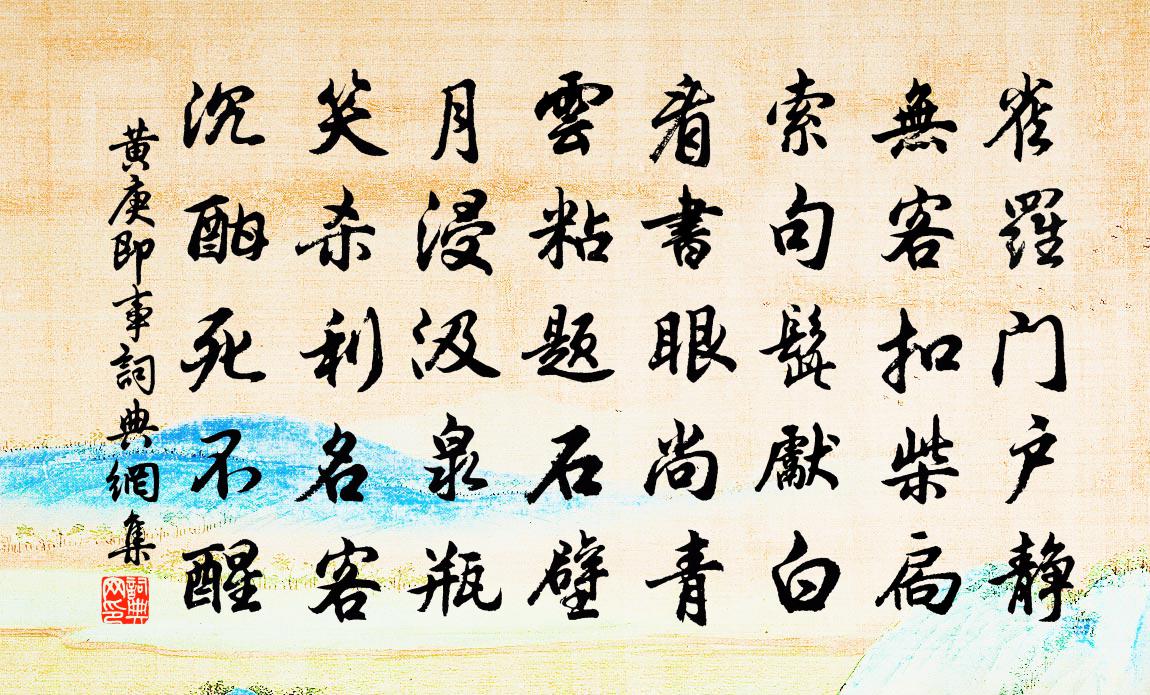 雀羅门户静
無客扣柴扃
索句髭獻白
看書眼尚青
雲粘题石壁
月浸汲泉瓶
笑杀利名客
沉酣死不醒
黄庚即事詞典網集
詞典网印